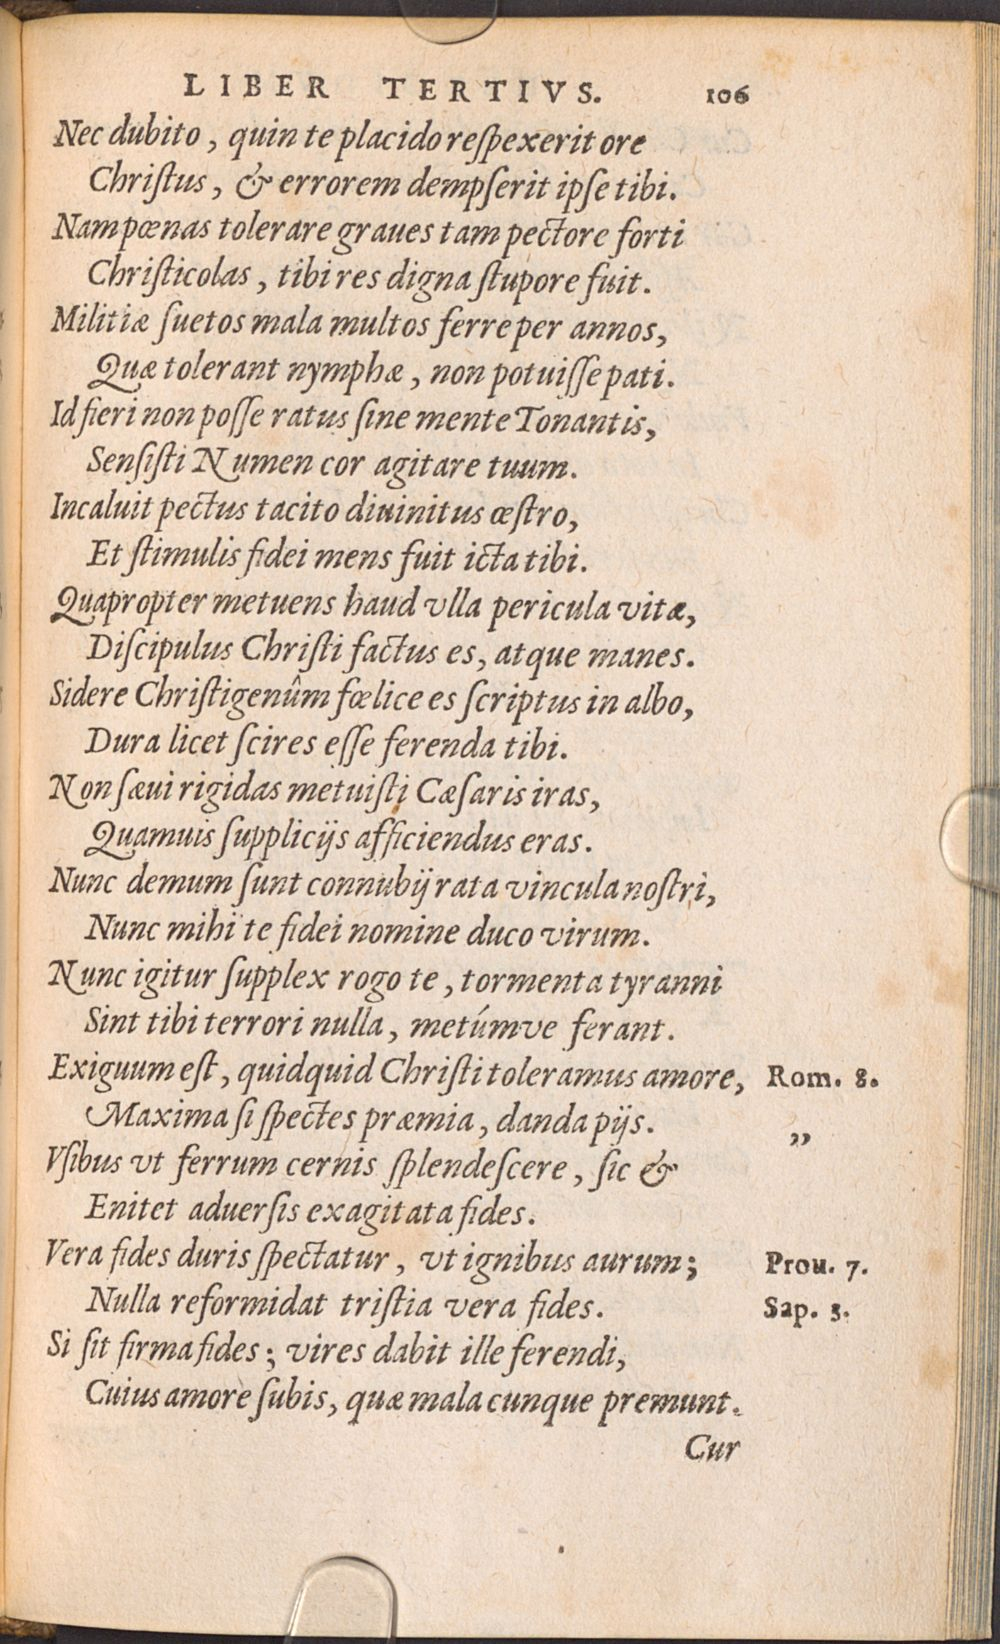 LIBER TERTIVS. 106
Nec dubito, quin te placido reſpexerit ore
Chriſtus, & errorem dempſerit ipſe tibi.
Nam pœnas tolerare graues tam pectore forti
Chriſticolas, tibi res digna ſtupore fuit.
Militiæ ſuetos mala multos ferre per annos,
Quæ tolerant nymphæ, non potuiſſe pati.
Id fieri non poſſe ratus ſine mente Tonantis,
Senſiſti Numen cor agitare tuum.
Incaluit pectus tacito diuinitus œſtro,
Et ſtimulis fidei mens fuit icta tibi.
Quapropter metuens haud vlla pericula vitæ,
Diſcipulus Chriſti factus es, atque manes.
Sidere Chriſtigenûm fœlice es ſcriptus in albo,
Dura licet ſcires eſſe ferenda tibi.
Non ſæui rigidas metuiſti Cæſaris iras,
Quamuis ſupplicijs afficiendus eras.
Nunc demum ſunt connubij rata vincula noſtri,
Nunc mihi te fidei nomine duco virum.
Nunc igitur ſupplex rogo te, tormenta tyranni
Sint tibi terrori nulla, metúmve ferant.
Exiguum eſt, quidquid Chriſti toleramus amore, Rom. 8.
Maxima ſi ſpectes præmia, danda pijs. „
Vſibus vt ferrum cernis ſplendeſcere, ſic &
Enitet aduerſis exagitata fides.
Vera fides duris ſpectatur, vt ignibus aurum; Prou. 7.
Nulla reformidat triſtia vera fides. Sap. 3.
Si ſit firma fides; vires dabit ille ferendi,
Cuius amore ſubis, quæ mala cunque premunt.
Cur